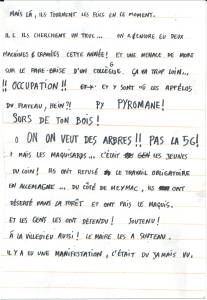 MAIS LÀ, ILS TOURNENT LES FLICS EN CE MOMENT.
ILS CHERCHENT UN TRUC... ON A ENCORE EU DEUX
MACHINES CRAMÉES CETTE ANNÉE! ET UNE MENACE DE MORT
SUR LE PARE-BRISE D'UN COLLÈGUE. ÇA VA TROP LOIN...
!! OCCUPATION!! ET Y SONT LES APPÉLOS
DU PLATEAU, HEIN?! PY PYROMANE!
SORS DE TON BOIS!
ON ON VEUT DES ARBRES!! PAS LA 5G!
MAIS LES MAQUISARDS... C'ÉTAIT LES JEUNES
DU COIN! ILS ONT REFUSÉ LE TRAVAIL OBLIGATOIRE
EN ALLEMAGNE... DU CÔTÉ DE MEYMAC, ILS ONT
DÉSERTÉ DANS LA FORÊT ET ONT PRIS LE MAQUIS.
ET LES GENS LES ONT DÉFENDU! SOUTENU!
À LA VILLEDIEU AUSSI! LE MAIRE LES A SOUTENU.
IL Y A EU UNE MANIFESTATION, C'ÉTAIT DU JAMAIS VU.